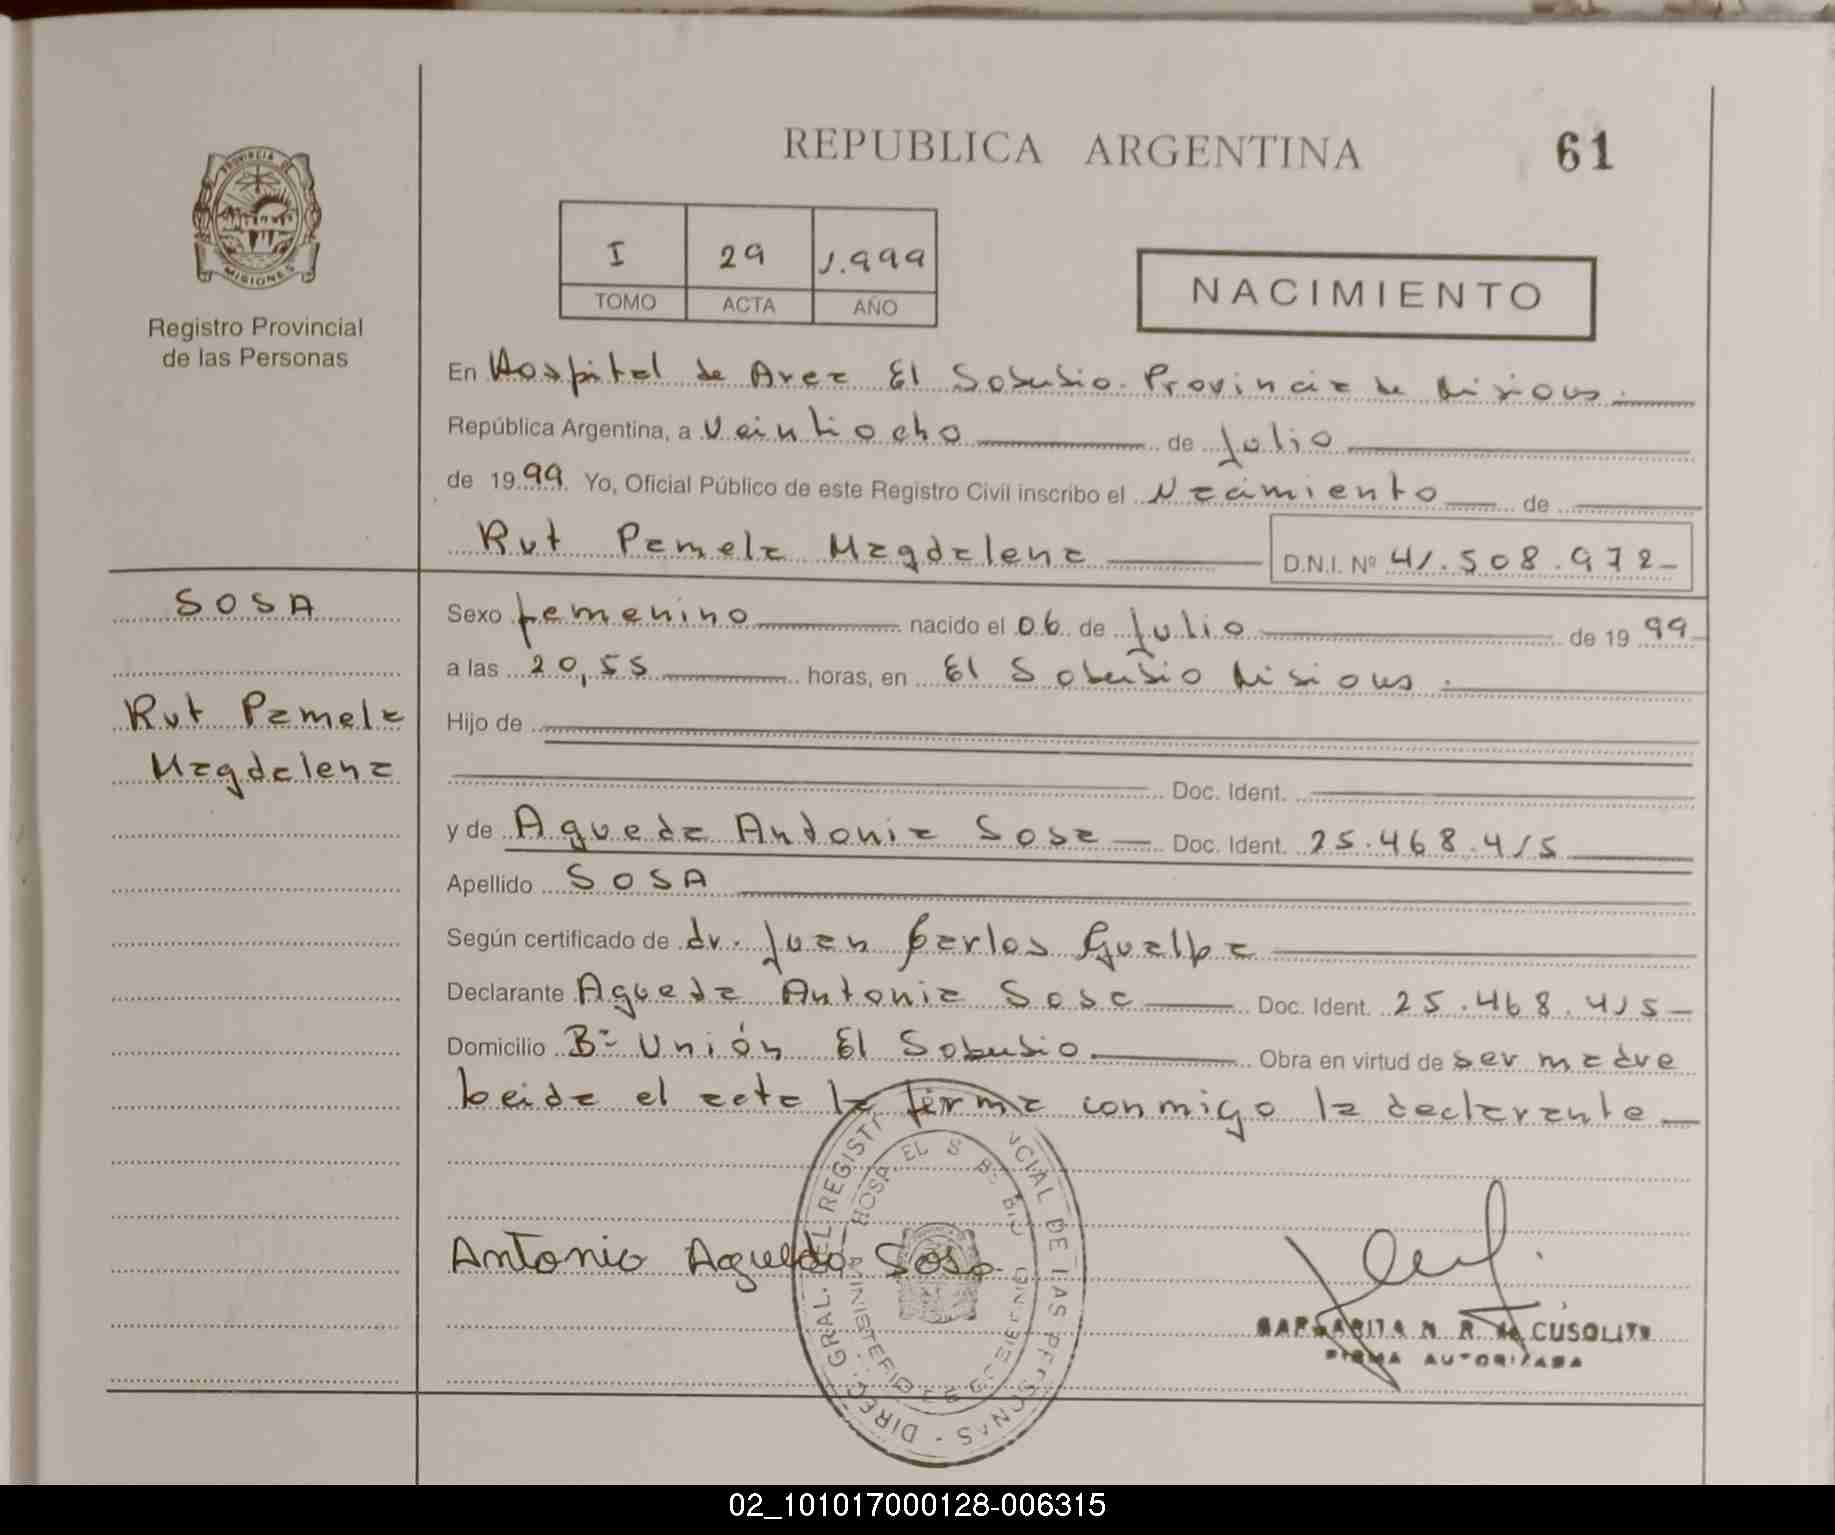 REPUBLICA ARGENTINA
61
PROVINCIA DE
MISIONES
Registro Provincial
de las Personas
I 29 1.999
TOMO ACTA AÑO
NACIMIENTO
En Hospital de Area El Soberbio. Provincia de Misiones.
República Argentina, a veintiocho de Julio
de 1999 Yo, Oficial Público de este Registro Civil inscribo el Nacimiento de
Rut Pamela Magdalena D.N.I. Nº 41.508.972
SOSA
Rut Pamela
Magdalena
Sexo femenino nacido el 06 de Julio de 1999
a las 20,55 horas, en El Soberbio Misiones.
Hijo de
Doc. Ident.
y de Agueda Antonia Sosa Doc. Ident. 25.468.415
Apellido SOSA
Según certificado de dr. Juan Carlos Gualpa
Declarante Agueda Antonia Sosa Doc. Ident. 25.468.415
Domicilio Bº Unión El Soberbio Obra en virtud de ser madre
Leida el acta la firma conmigo la declarante
Antonio Agueda Sosa
FIRMA AUTORIZADA
02_101017000128-006315